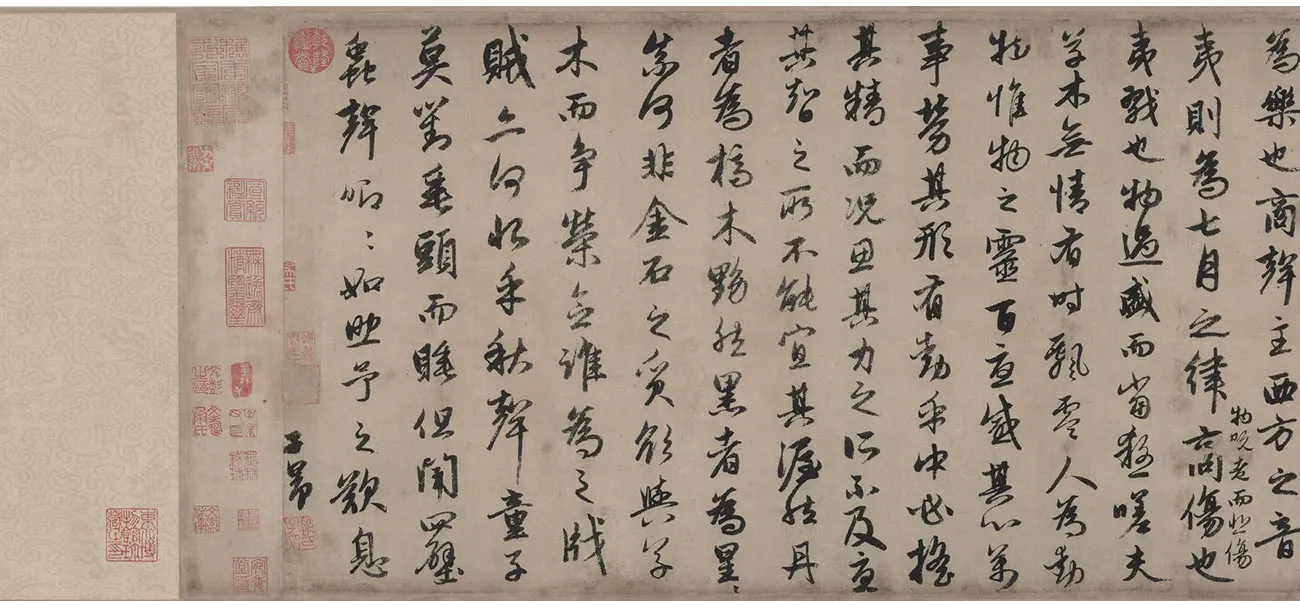 為樂也商聲主西方之音
夷則為七月之律商傷也
物既老而悲傷
夷戮也物過盛而當殺嗟夫
草木無情有時飄零人為動
物惟物之靈百憂感其心萬
事勞其形有動乎中必搖
其精而況思其力之所不及憂
其智之所不能宜其渥然丹
者為槁木黟然黑者為星〻
奈何非金石之質欲與草
木而爭榮念誰為之戕
賊亦何恨乎秋聲童子
莫對垂頭而睡但聞四壁
蟲聲唧〻如助予之歎息
子昂
乾隆鑑賞
宣統鑑賞
無逸齋精鑑璽
東北博物館珍藏之印